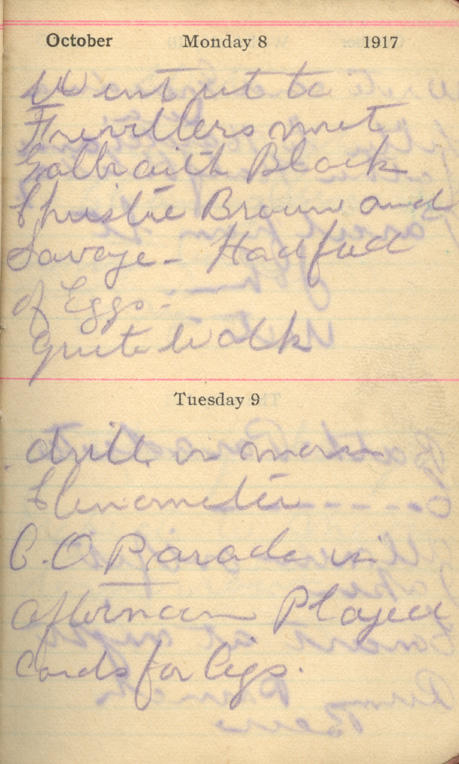 October Monday 8 1917
Went to
Frevillers met
Galbraith Black
Christie Brown and
Savage - Had feed
of Eggs -
Quite Walk
Tuesday 9
drill in morn
C.O Parade in
afternoon Played
Cards for Cigs.